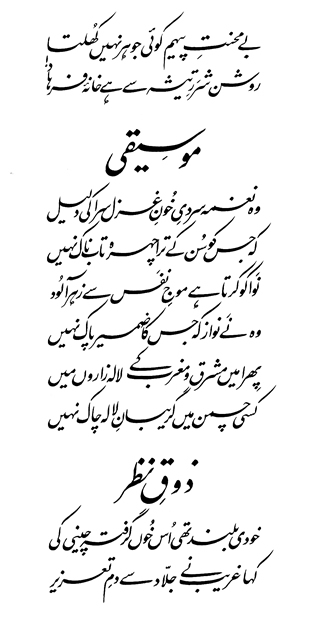 بے محنتِ پیہم کوئی جوہر نہیں کھلتا
روشن شررِ تیشہ سے ہے خانۂ فرہاد!
موسیقی
وہ نغمہ سردیِ خونِ غزل سرا کی دلیل
کہ جس کو سن کے ترا چہرہ تاب ناک نہیں
نوا کو کرتا ہے موجِ نفس سے زہر آلود
وہ نے نواز کہ جس کا ضمیر پاک نہیں
پھرا میں مشرق و مغرب کے لالہ زاروں میں
کسی چمن میں گریبانِ لالہ چاک نہیں
ذوقِ نظر
خودی بلند تھی اُس خُوں گرفتہ چینی کی
کہا غریب نے جلّاد سے دمِ تعزیر